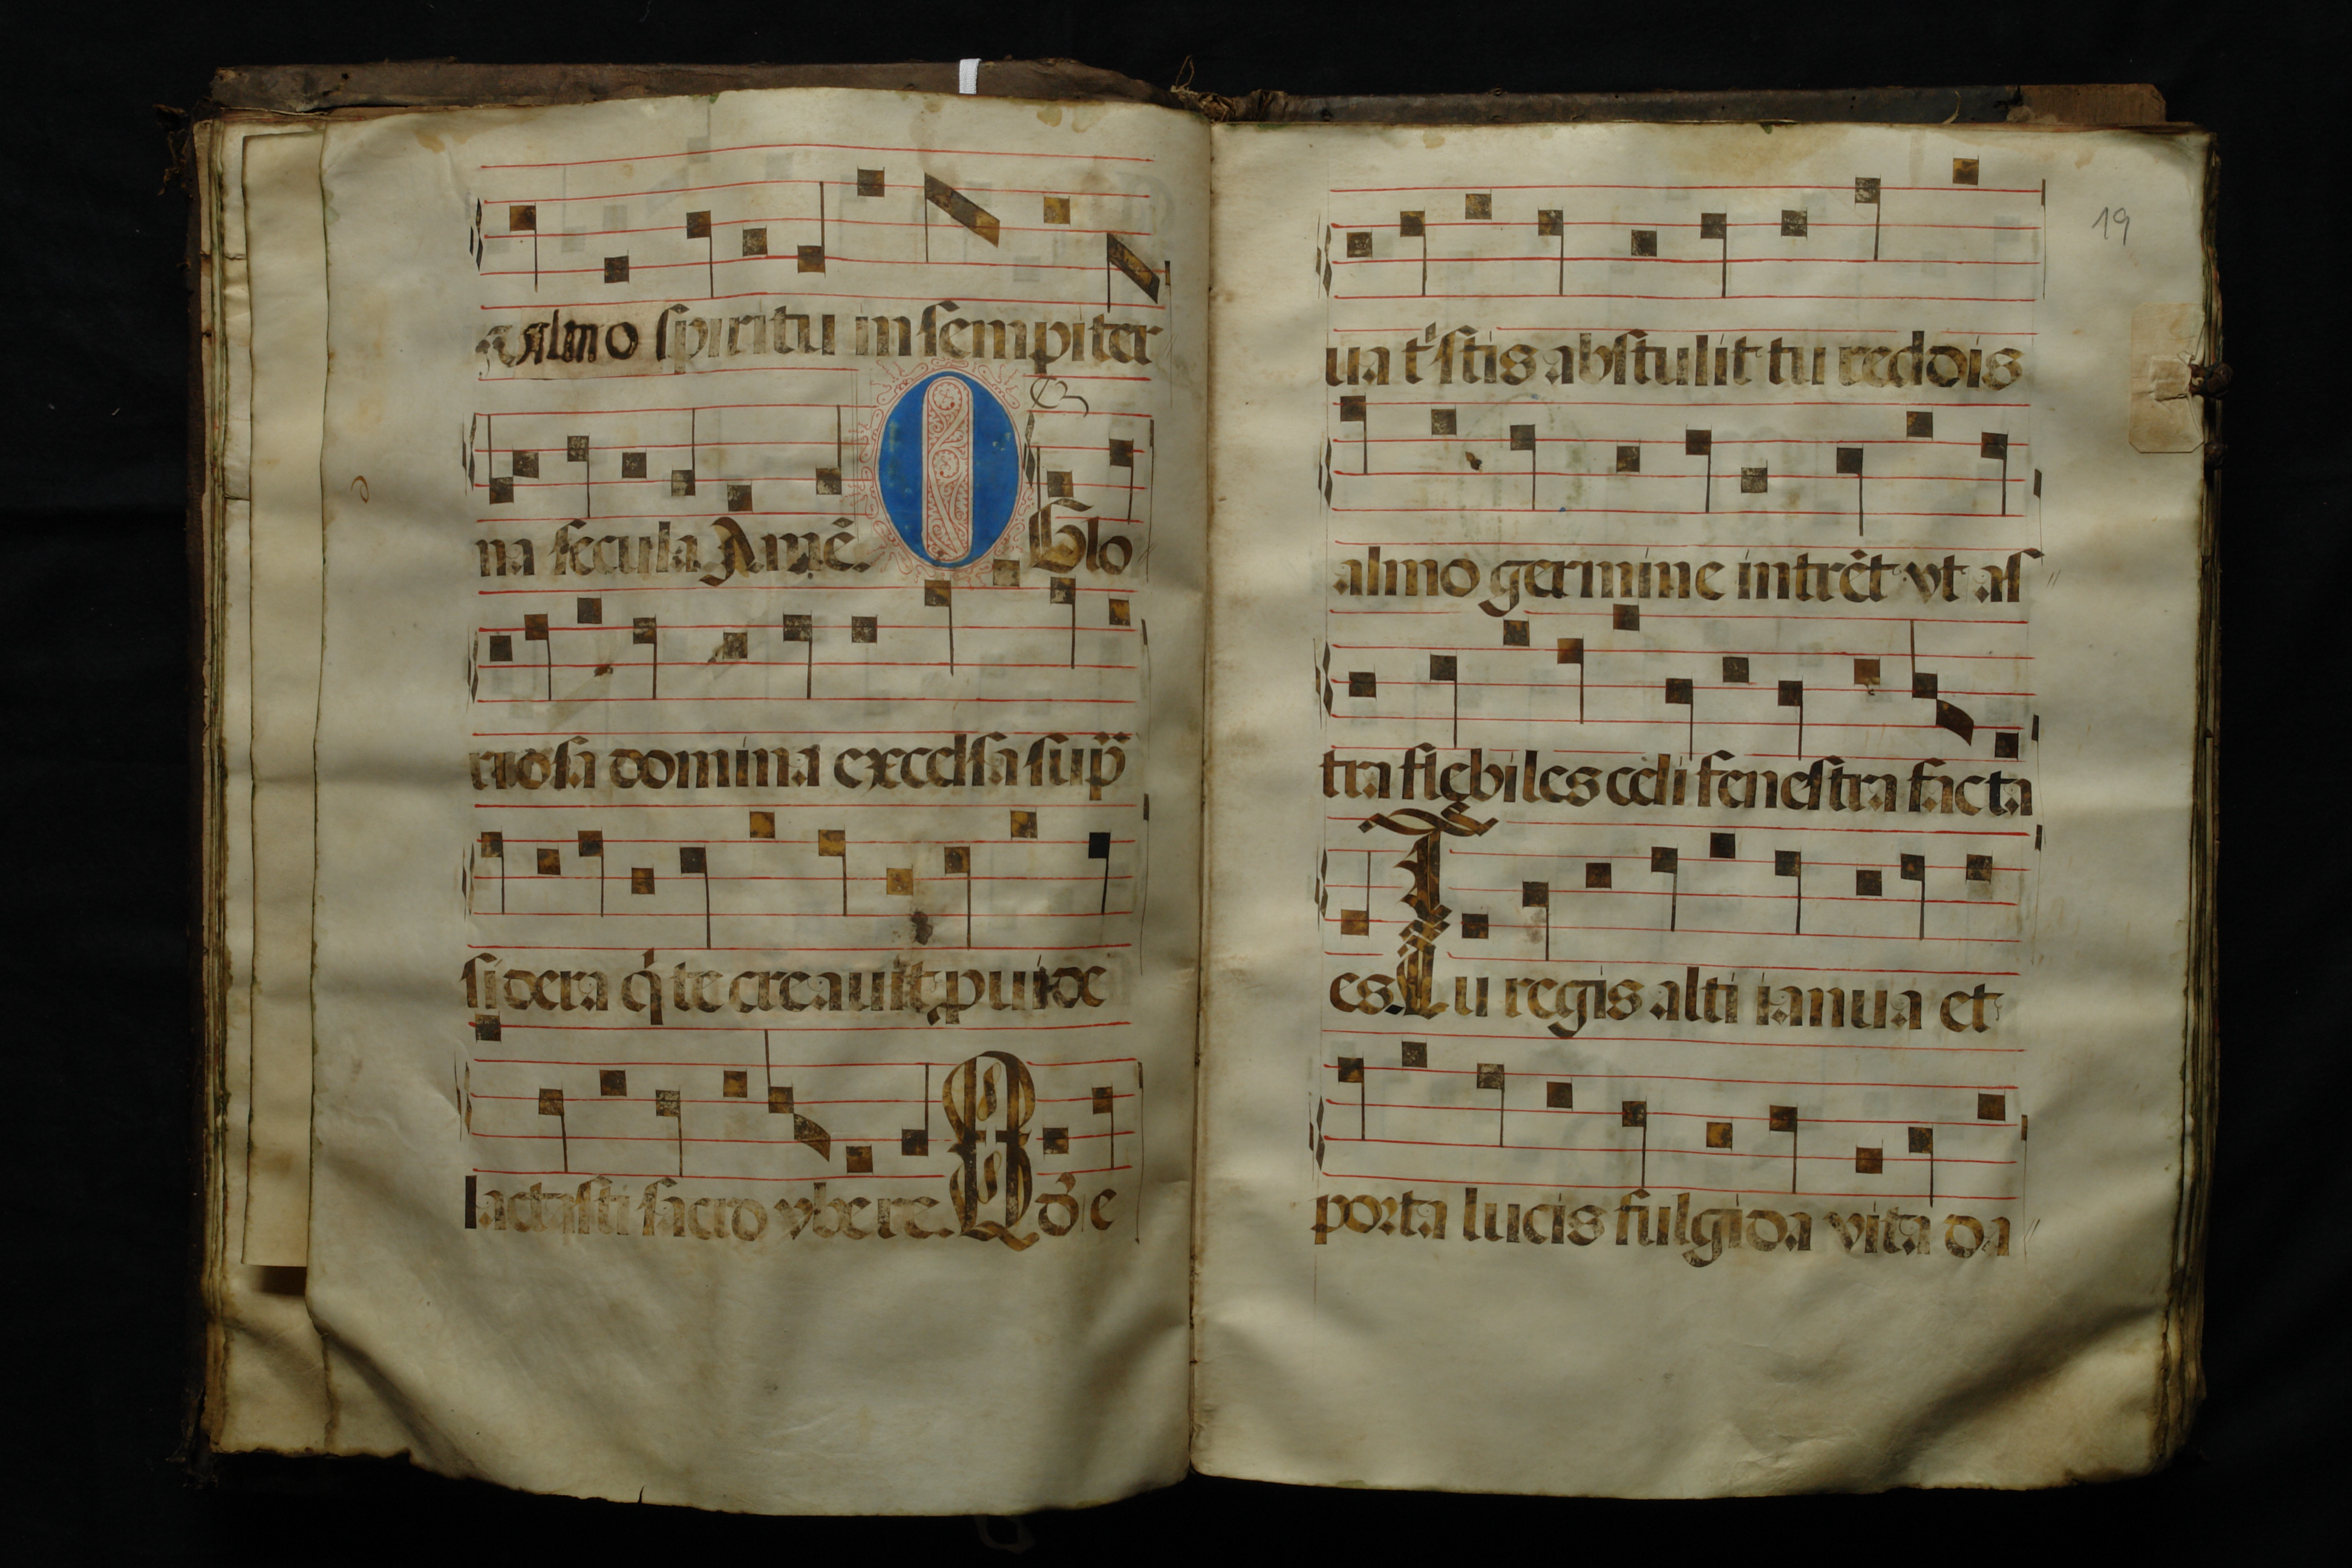 almo spiritu in sempiter
na secula Amē. O Glo
riosa domina excelsa sup̄
sidera q̇ te creauit puide
lactasti sacro vbere. Qd̄ e
19
ua tͥstis abstulit tu reddis
almo germine intrēt vt as
tra flebiles celi fenestra facta
es. Tu regis alti ianua et
porta lucis fulgida vita da